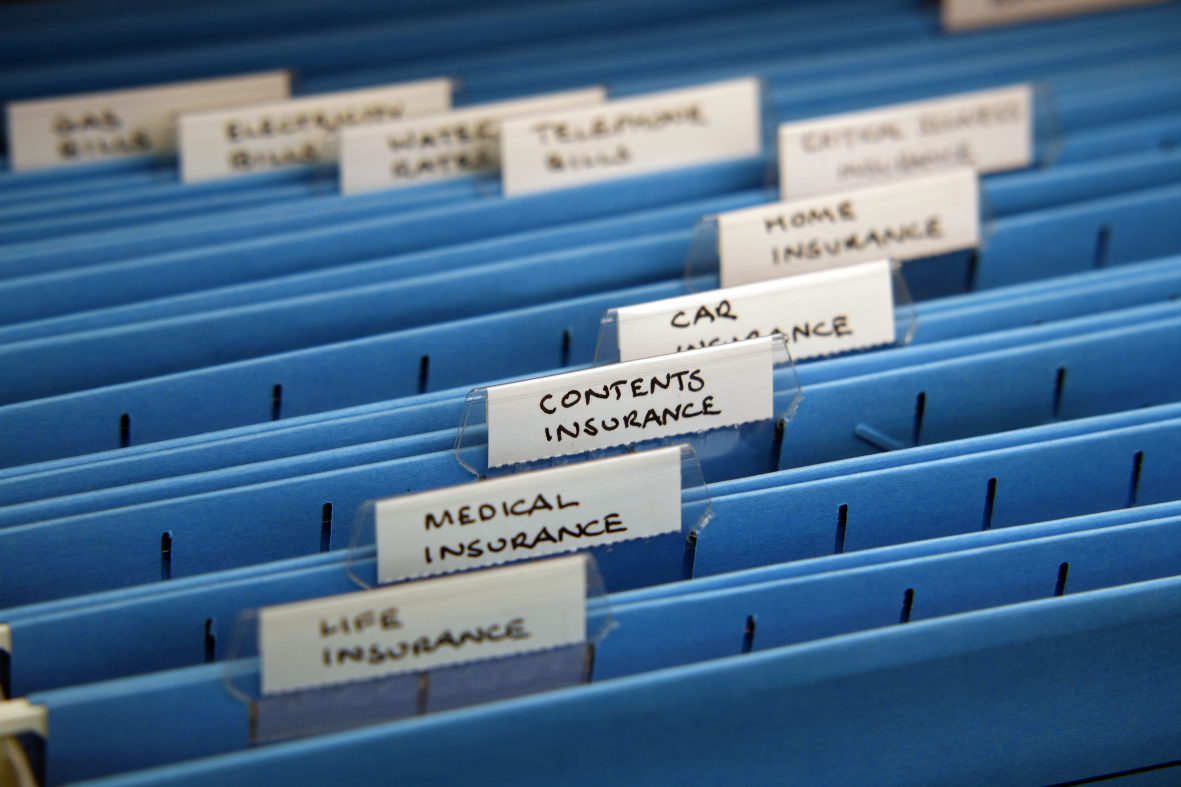 GAS
BILLS
ELECTRICITY
BILLS
WATER
RATES
TELEPHONE
BILLS
CRITICAL ILLNESS
INSURANCE
HOME
INSURANCE
CAR
INSURANCE
CONTENTS
INSURANCE
MEDICAL
INSURANCE
LIFE
INSURANCE